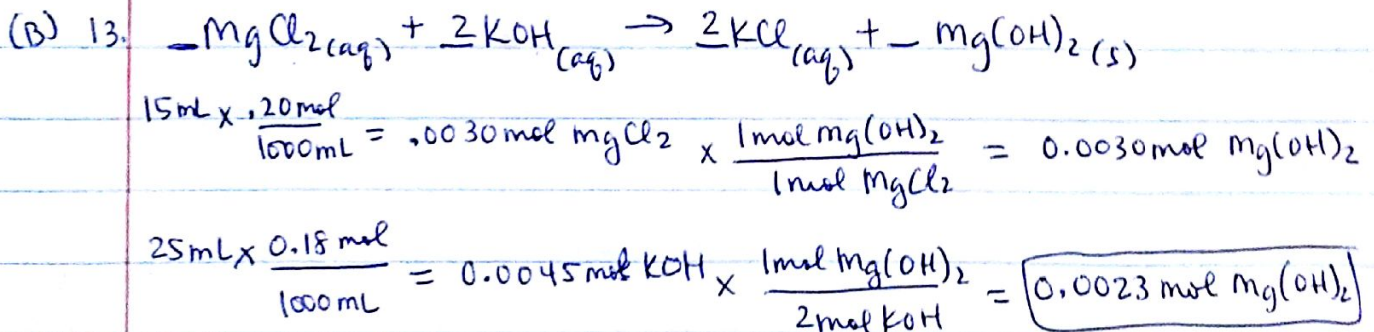 (B) 13. _MgCl₂(aq) + 2KOH(aq) → 2KCl(aq) + _ Mg(OH)₂(s)
15mL x .20mol/1000mL = .0030mol MgCl₂ x 1mol Mg(OH)₂/1mol MgCl₂ = 0.0030mol Mg(OH)₂
25mL x 0.18 mol/1000mL = 0.0045mol KOH x 1mol Mg(OH)₂/2mol KOH = 0.0023 mol Mg(OH)₂